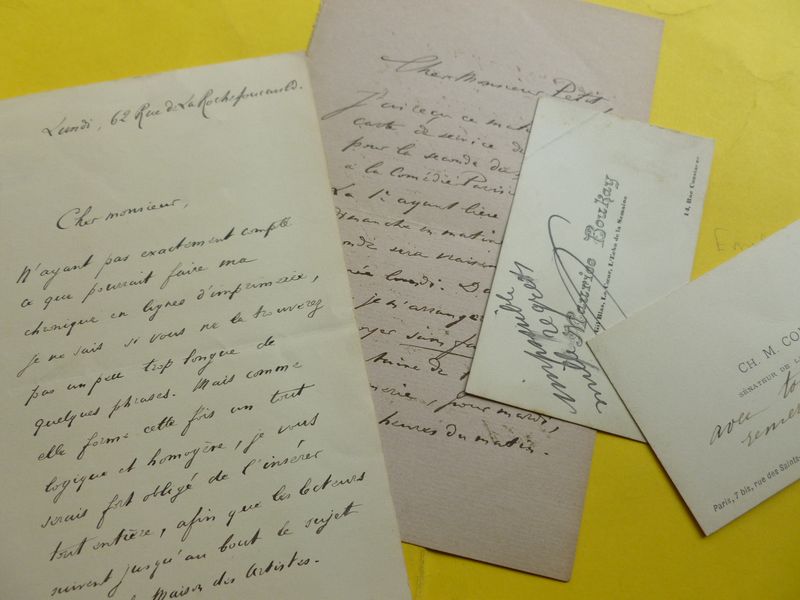 Lundi, 62 Rue de La Rochefoucauld.
Cher monsieur,
N'ayant pas exactement compté
ce que pourrait faire ma
chronique en lignes d'imprimerie,
je ne sais si vous ne la trouverez
pas un peu trop longue de
quelques phrases. Mais comme
elle forme cette fois un tout
logique et homogène, je vous
serais fort obligé de l'insérer
tout entière, afin que les lecteurs
suivent jusqu'au bout le sujet
Maison des Artistes.
Cher Monsieur Petit,
J'ai reçu ce mat
carte de service de
pour la seconde de
à la Comédie Paris
La 1e ayant lieu
dimanche en matin
sera
lundi. D
je m'arrange
sans fa
taine de
pour mardi,
heures du matin.
impossible
mille regrets
Maurice Boukay
L'Echo de la Semaine
14, Rue
CH. M. CO
SÉNATEUR DE L
avec to
remer
Paris, 7 bis, rue des Saints-